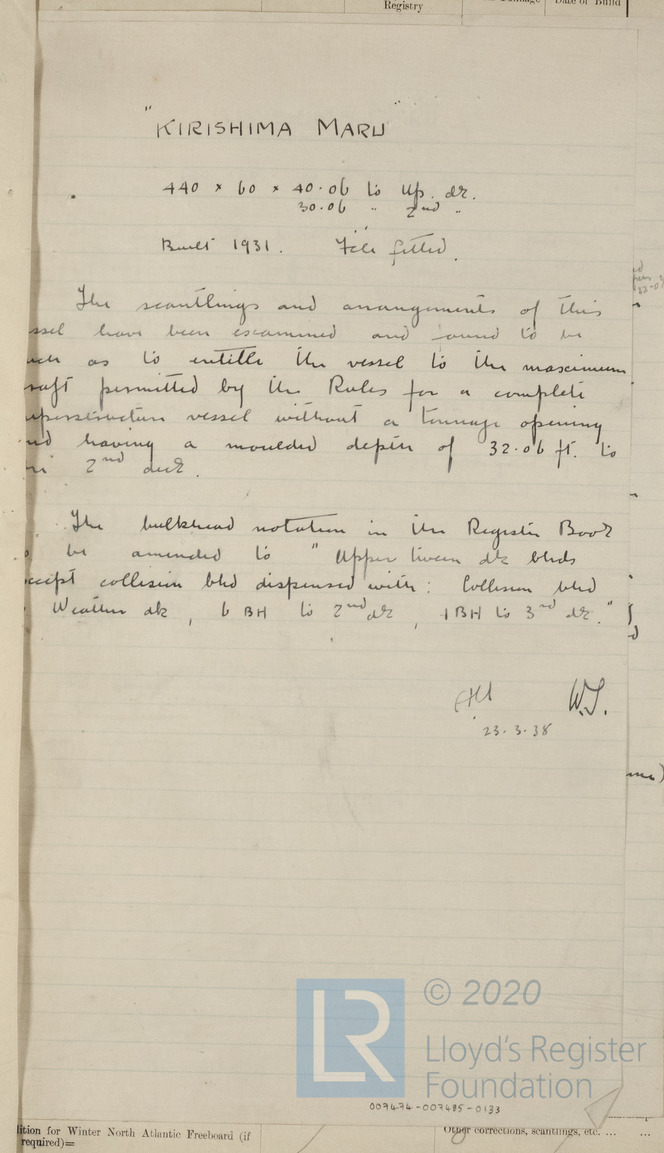 Registry
Date of Build
"KIRISHIMA MARU"
440 × 60 × 40.06 to Up. dk.
30.06 " 2nd "
Built 1931. fitted.
The scantlings and arrangements of this
ssel have been examined and found to be
uch as to entitle the vessel to the maximum
raft permitted by the Rules for a complete
uperstructure vessel without a tonnage opening
nd having a moulded depth of 32.06 ft. to
2nd deck.
The bulkhead notation in the Register Book
be amended to "Upper tween dk blhds
except collision blhd dispensed with: Collision blhd
Weather dk, 6 BH to 2nd dk, 1 BH to 3rd dk."
W.S.
23.3.38
© 2020
LR
Lloyd's Register
Foundation
007474-007485-0133
dition for Winter North Atlantic Freeboard (if
required)=
Other corrections, scantlings, etc. ... ...